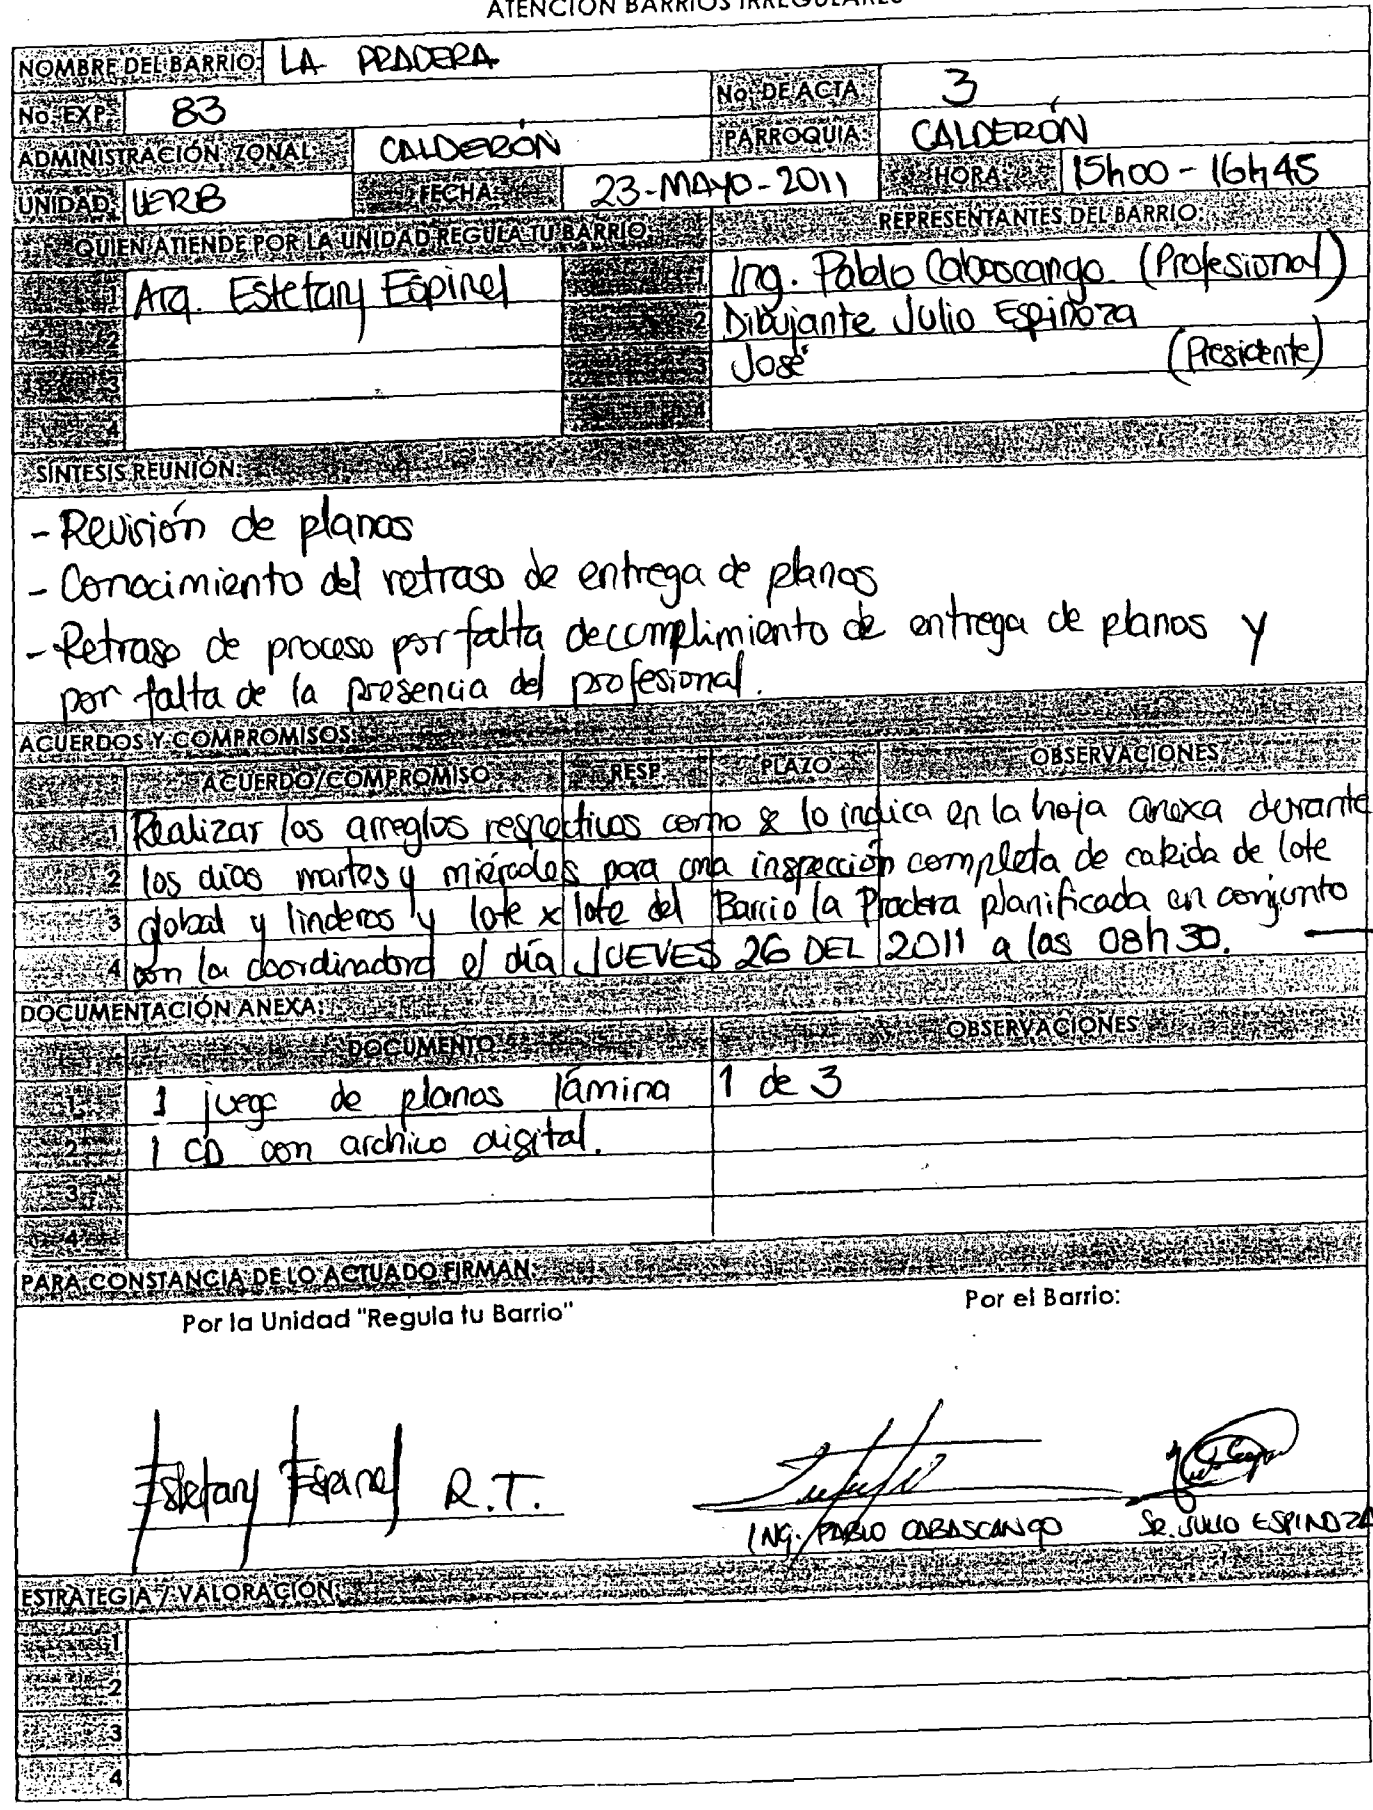 ATENCIÓN BARRIOS IRREGULARES
NOMBRE DEL BARRIO: LA PRADERA
No. EXP: 83 No. DE ACTA 3
ADMINISTRACIÓN ZONAL: CALDERÓN PARROQUIA CALDERÓN
UNIDAD: UERB FECHA: 23-MAYO-2011 HORA: 15h00 - 16h45
QUIEN ATIENDE POR LA UNIDAD REGULA TU BARRIO: REPRESENTANTES DEL BARRIO:
1 Arq. Estefany Espinel 1 Ing. Pablo Cabascango (Profesional)
2 2 Dibujante Julio Espinoza
3 3 José (Presidente)
4 4
SÍNTESIS REUNIÓN:
- Revisión de planos
- Conocimiento del retraso de entrega de planos
- Retraso de proceso por falta de cumplimiento de entrega de planos y
por falta de la presencia del profesional.
ACUERDOS Y COMPROMISOS:
ACUERDO/COMPROMISO RESP. PLAZO OBSERVACIONES
1 Realizar los arreglos respectivos como se lo indica en la hoja anexa durante
2 los días martes y miércoles para una inspección completa de cabida de lote
3 global y linderos y lote x lote del Barrio la Pradera planificada en conjunto
4 con la coordinadora el día JUEVES 26 DEL 2011 a las 08h30.
DOCUMENTACIÓN ANEXA:
DOCUMENTO OBSERVACIONES
1 1 juego de planos lámina 1 de 3
2 1 CD con archivo digital.
3
4
PARA CONSTANCIA DE LO ACTUADO FIRMAN:
Por la Unidad "Regula tu Barrio" Por el Barrio:
Estefany Espinel R.T.
ING. PABLO CABASCANGO SR. JULIO ESPINOZA
ESTRATEGIA / VALORACIÓN:
1
2
3
4